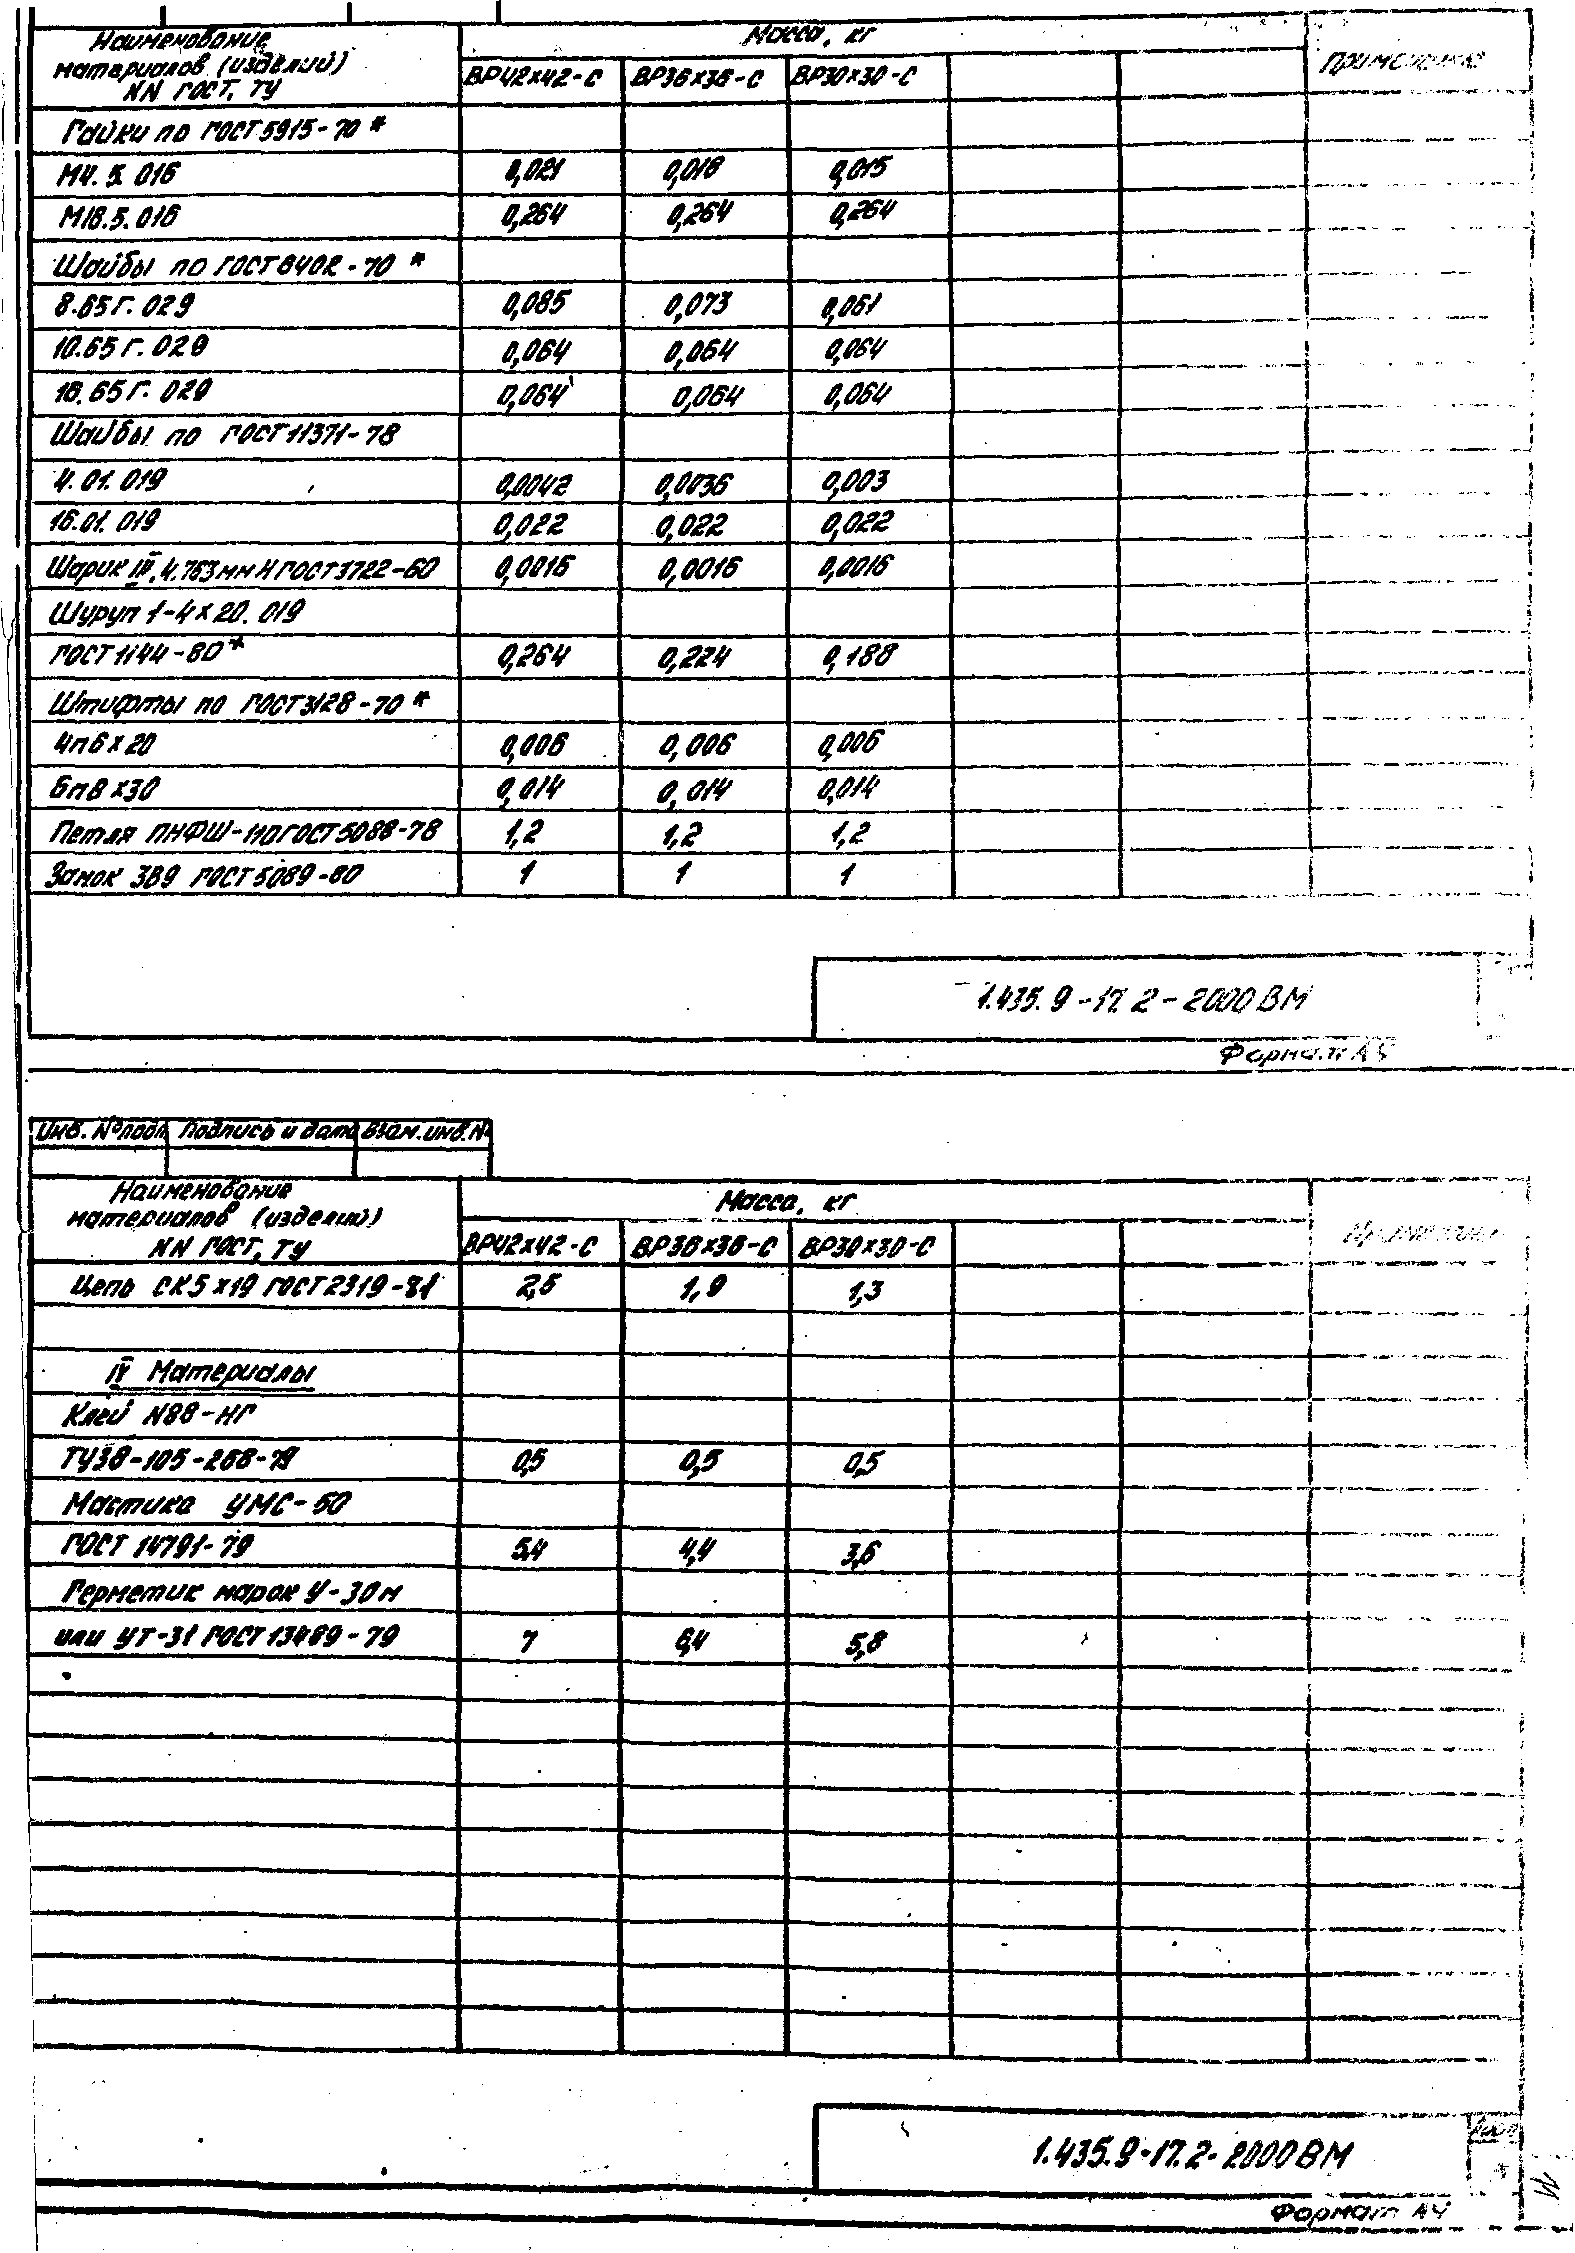 Наименование
материалов (изделий)
NN ГОСТ, ТУ
Масса, кг
Примечание
ВР42х42-С ВР36х36-С ВР30х30-С
Гайки по ГОСТ 5915-70*
М4.5.016 0,021 0,018 0,015
М16.5.016 0,264 0,264 0,264
Шайбы по ГОСТ 6402-70*
8.65Г.029 0,085 0,073 0,061
10.65Г.029 0,064 0,064 0,064
16.65Г.029 0,064 0,064 0,064
Шайбы по ГОСТ 11371-78
4.01.019 0,0042 0,0036 0,003
16.01.019 0,022 0,022 0,022
Шарик IV, 4.763мм Н ГОСТ 3722-60 0,0016 0,0016 0,0016
Шуруп 1-4х20.019
ГОСТ 1144-80* 0,264 0,224 0,188
Штифты по ГОСТ 3128-70*
4п6х20 0,006 0,006 0,006
6п8х30 0,014 0,014 0,014
Петля ПНФШ-110 ГОСТ 5088-78 1,2 1,2 1,2
Замок ЗВ9 ГОСТ 5089-80 1 1 1
1.435.9-17.2-2000 ВМ
Формат
Инв. № подл Подпись и дата Взам. инв. №
Наименование
материалов (изделий)
NN ГОСТ, ТУ
Масса, кг
ВР42х42-С ВР36х36-С ВР30х30-С
Цепь СК5х19 ГОСТ 2319-81 2,5 1,9 1,3
IV Материалы
Клей N88-НГ
ТУ38-105-268-79 0,5 0,5 0,5
Мастика УМС-50
ГОСТ 14791-79 5,4 4,4 3,6
Герметик марок У-30м
или УТ-31 ГОСТ 13489-79 7 6,4 5,8
1.435.9-17.2-2000 ВМ
Лист
Формат А4
11